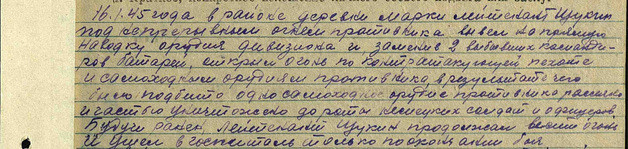 16.1.45 года в районе деревни Марки лейтенант Щукин
под непрерывным огнем противника вывел на прямую
наводку орудия дивизиона и заменив 2 выбывших команди-
ров батарей, открыл огонь по контратакующей пехоте
и самоходным орудиям противника, в результате чего
было подбито одно самоходное орудие противника рассеяно
и частью уничтожено до роты немецких солдат и офицеров.
Будучи ранен, лейтенант Щукин продолжал вести огонь
и ушел в госпиталь только по окончании боя.